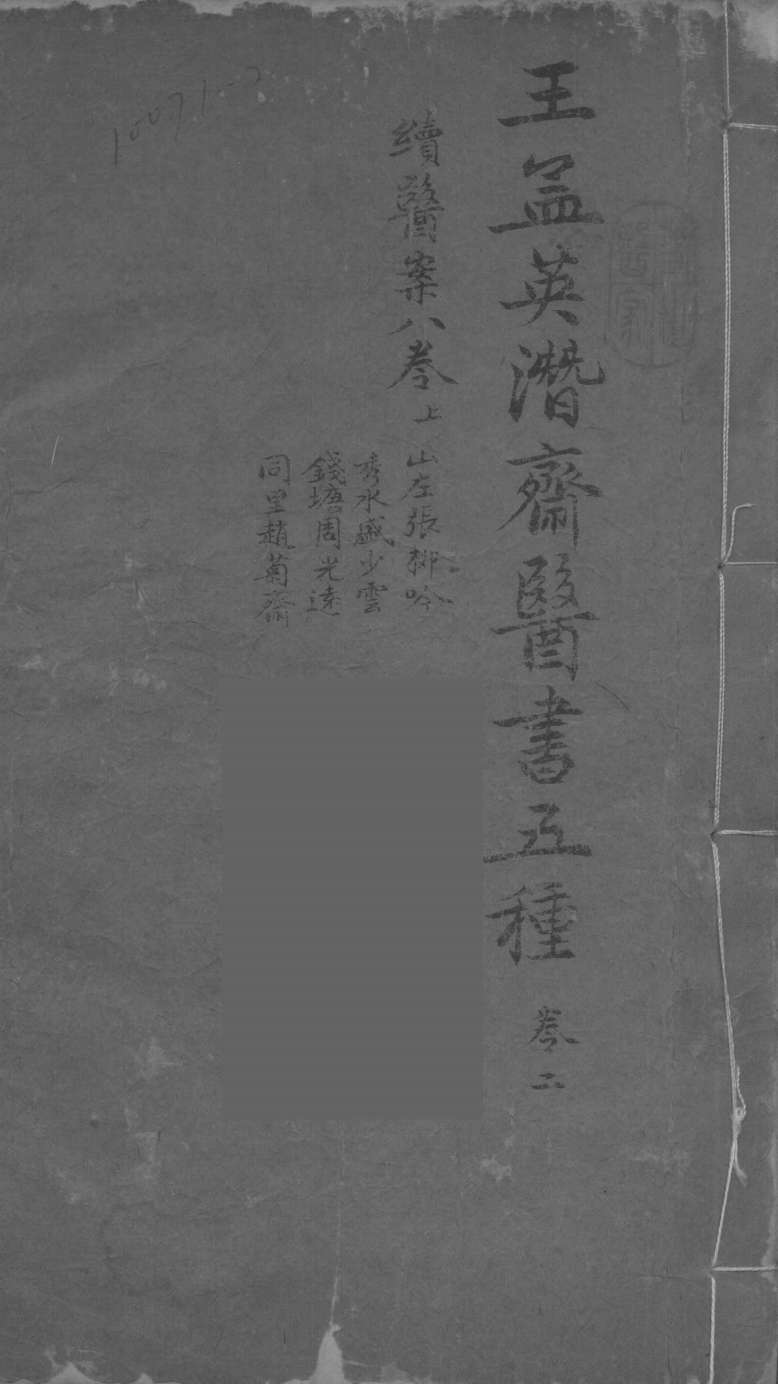 王孟英潛齋醫書五種 卷二
續醫案八卷 上
山左張柳吟
秀水盛少雲
錢塘周光遠
同里趙菊齋